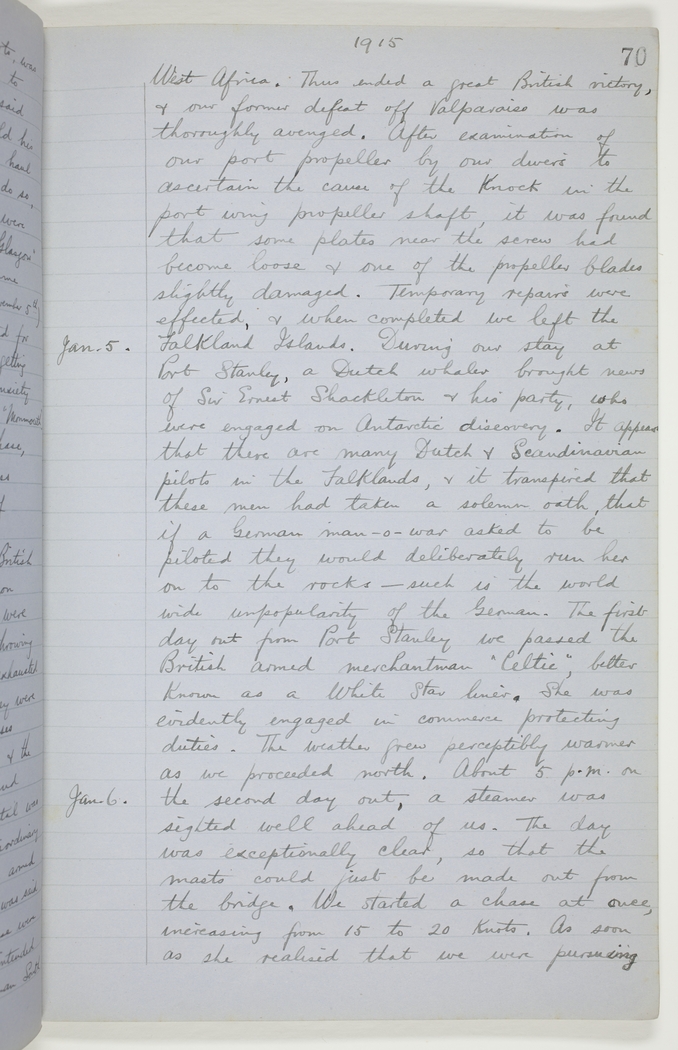 1915
70
West Africa. Thus ended a great British victory,
& our former defeat off Valparaiso was
thoroughly avenged. After examination of
our port propeller by our divers to
ascertain the cause of the knock in the
port wing propeller shaft, it was found
that some plates near the screw had
become loose & one of the propeller blades
slightly damaged. Temporary repairs were
effected, & when completed we left the
Jan. 5. Falkland Islands. During our stay at
Port Stanley, a Dutch whaler brought news
of Sir Ernest Shackleton & his party, who
were engaged on Antarctic discovery. It appears
that there are many Dutch & Scandinavian
pilots in the Falklands, & it transpired that
these men had taken a solemn oath, that
if a German man-o-war asked to be
piloted they would deliberately run her
on to the rocks — such is the world
wide unpopularity of the German. The first
day out from Port Stanley we passed the
British armed merchantman "Celtic", better
known as a White Star liner. She was
evidently engaged in commerce protecting
duties. The weather grew perceptibly warmer
as we proceeded north. About 5 p.m. on
Jan. 6. the second day out, a steamer was
sighted well ahead of us. The day
was exceptionally clear, so that the
masts could just be made out from
the bridge. We started a chase at once,
increasing from 15 to 20 knots. As soon
as she realised that we were pursuing